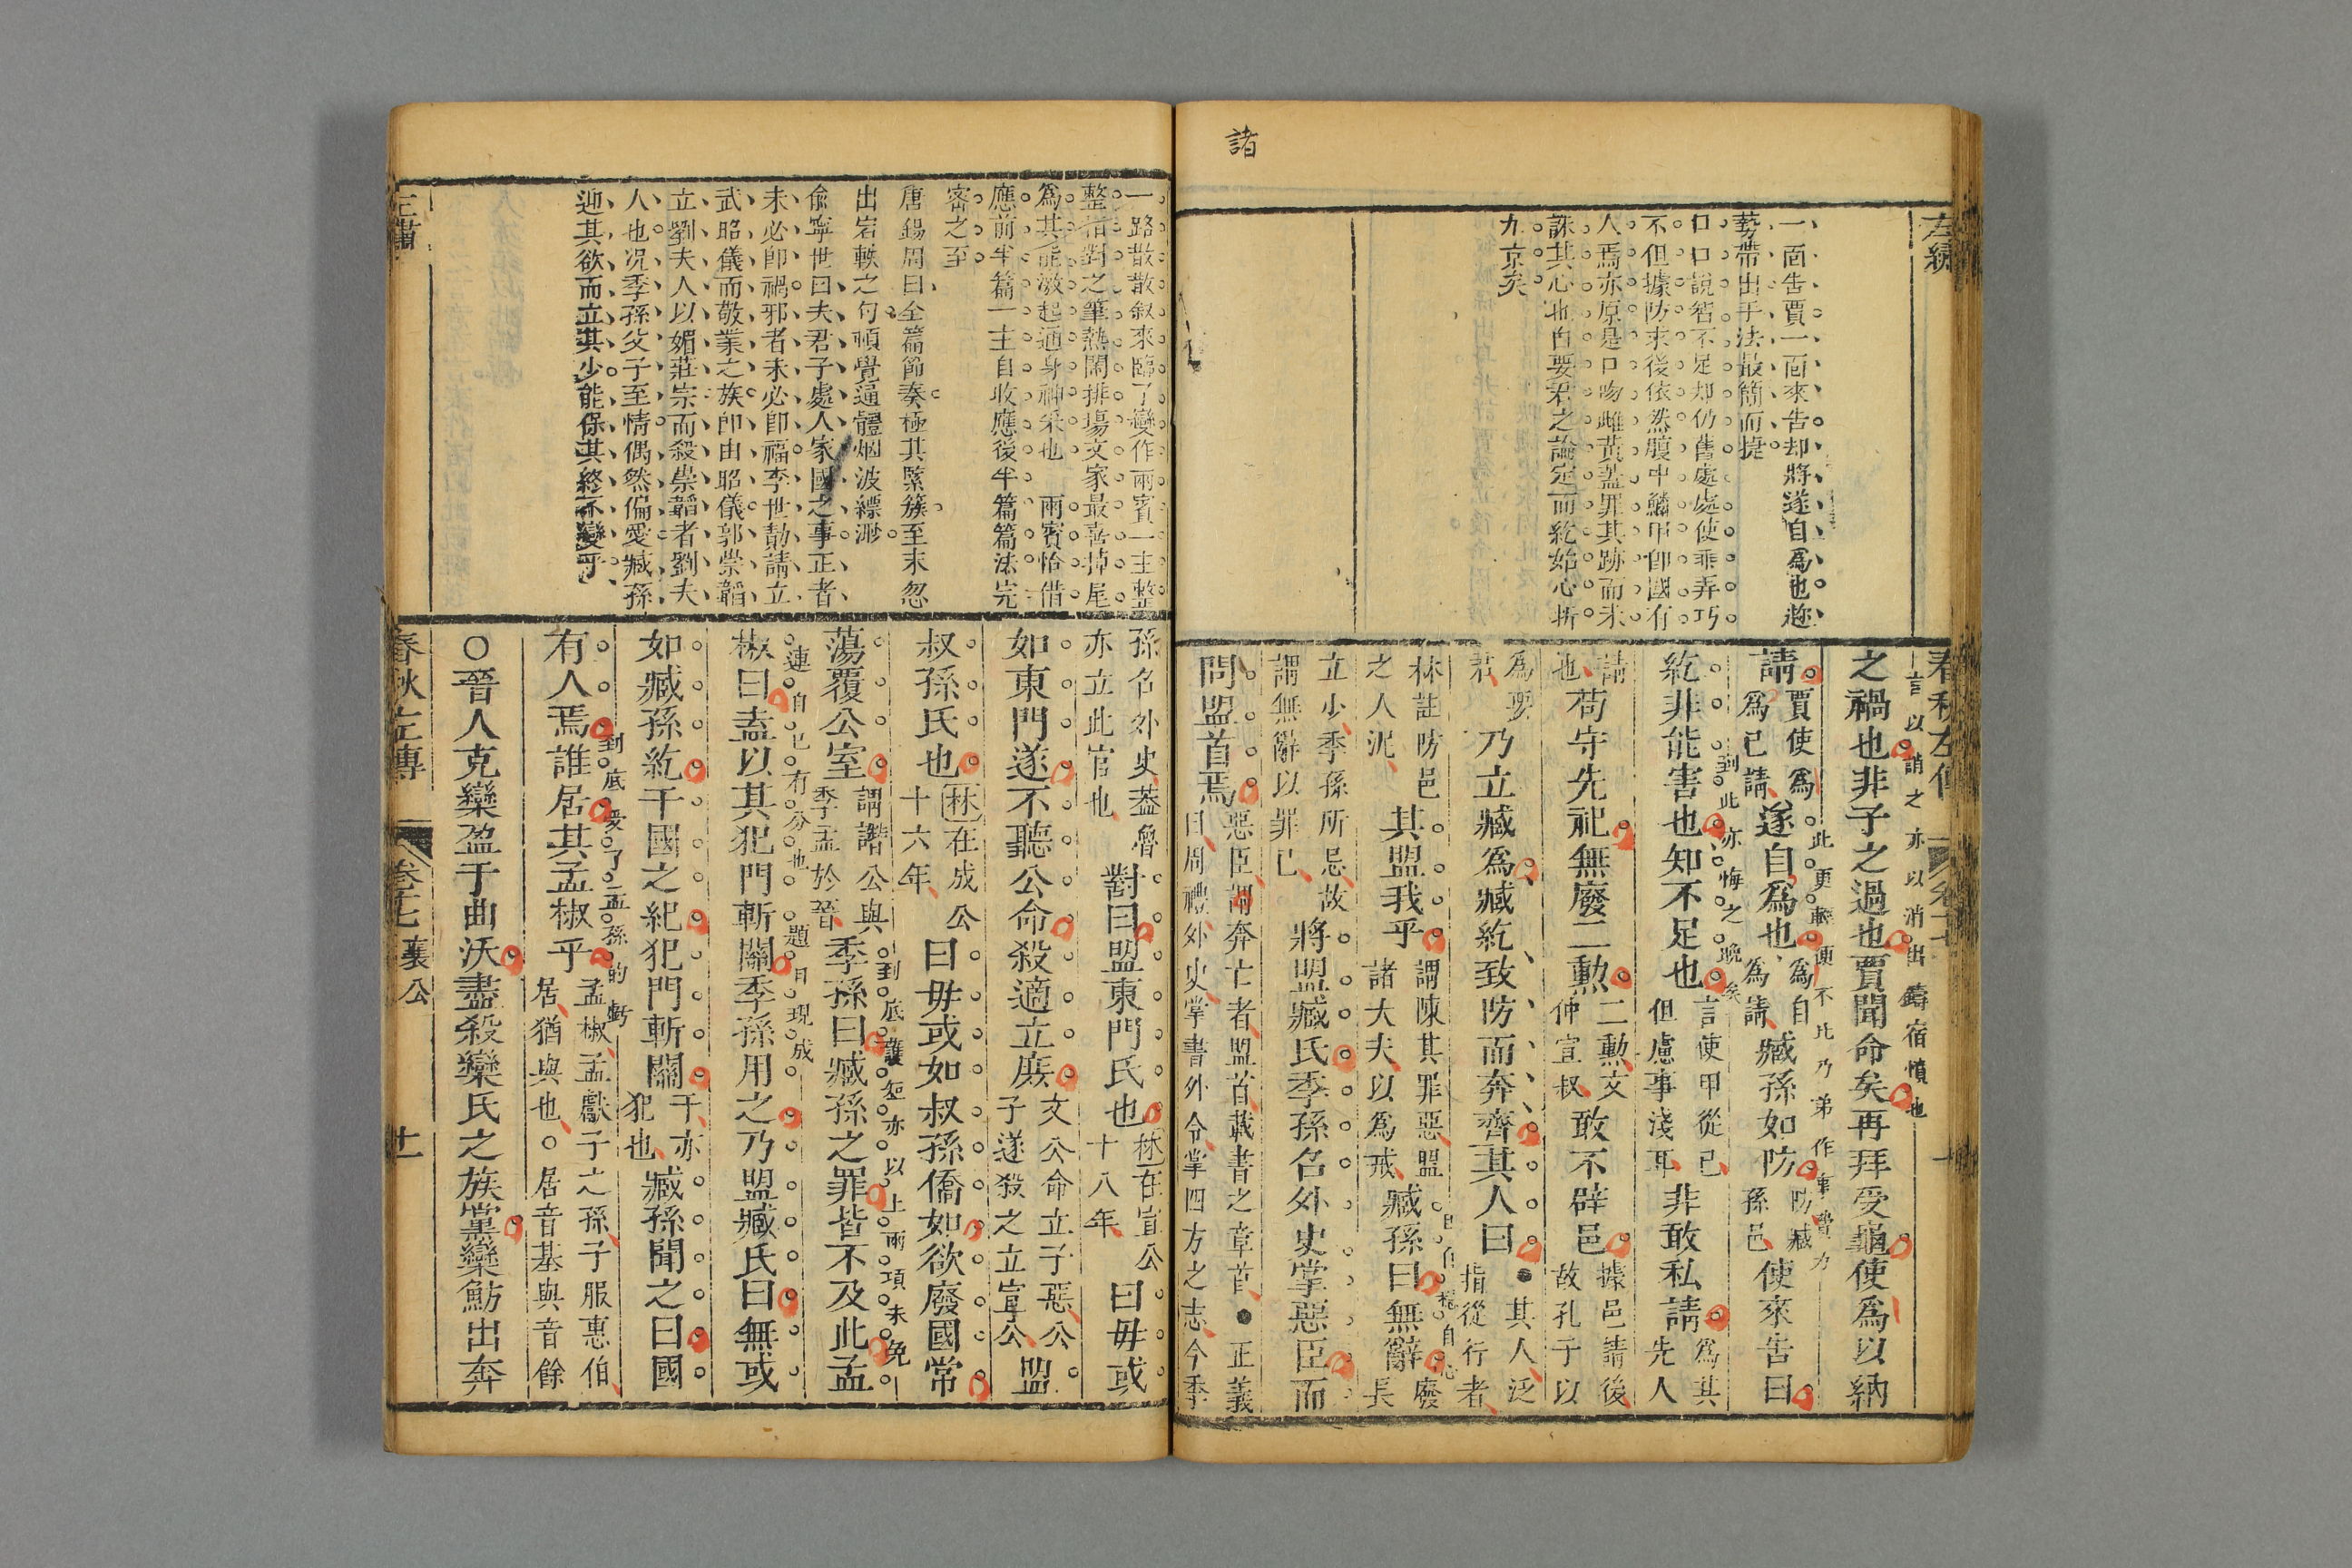 諸
左繡
一面告賈一面來告却將遂自爲也趂
勢帶出手法最簡而捷
口口說智不足却仍舊處處使乖弄巧
不但據防求後依然腹中鱗甲卽國有
人焉亦原是口吻雌黃蓋罪其跡而未
誅其心也自要君之論定而紇始心折
九京矣
春秋左傳
十
之禍也非子之過也賈聞命矣再拜受龜使爲以納
請
賈使爲
爲己請
遂自爲也
爲自
爲請
臧孫如防
防臧
孫邑
使來告曰
此更輕便不比乃弟作事費力
紇非能害也知不足也
言使甲從己
但慮事淺耳
非敢私請
爲其
先人
到此亦悔之晚矣
請
也
苟守先祀無廢二勲
二勲文
仲宣叔
敢不辟邑
據邑請後
故孔子以
爲要
君
乃立臧爲臧紇致防而奔齊其人曰
●其人泛
指從行者
林註防邑
之人泥
其盟我乎
謂陳其罪惡盟
諸大夫以爲戒
臧孫曰無辭
廢
長
立少季孫所忌故
謂無辭以罪已
將盟臧氏季孫召外史掌惡臣而
問盟首焉
惡臣謂奔亡者盟首載書之章首●正義
曰周禮外史掌書外令掌四方之志今季
一路散散叙來臨了變作兩賓一主整
整相對之筆熱鬧排塲文家最喜掉尾
爲其能激起通身神采也 兩賓恰借
應前半篇一主自收應後半篇篇法完
密之至
唐錫周曰全篇節奏極其緊簇至末忽
出宕軼之句頓覺逼體烟波縹渺
俞寧世曰夫君子處人家國之事正者
未必卽禍邪者未必卽福李世勣請立
武昭儀而敬業之族卽由昭儀郭崇韜
立劉夫人以媚莊宗而殺崇韜者劉夫
人也况季孫父子至情偶然偏愛臧孫
迎其欲而立其少能保其終不變乎
孫召外史葢魯
亦立此官也
對曰盟東門氏也
林在宣公
十八年
曰毋或
如東門遂不聽公命殺適立庶
文公命立子惡公
子遂殺之立宣公
盟
叔孫氏也
林在成公
十六年
曰毋或如叔孫僑如欲廢國常
蕩覆公室
謂譖公與
季孟於晉
季孫曰臧孫之罪皆不及此孟
到底護短亦以上兩項未免
椒曰盍以其犯門斬關季孫用之乃盟臧氏曰無或
連自己有分也
題目現成
如臧孫紇干國之紀犯門斬關
干亦
犯也
臧孫聞之曰國
有人焉誰居其孟椒乎
孟椒孟獻子之孫子服惠伯
居猶與也○居音基與音餘
到底受了孟孫的虧
○晉人克欒盈于曲沃盡殺欒氏之族黨欒魴出奔
春秋左傳
卷十七 襄公
十一